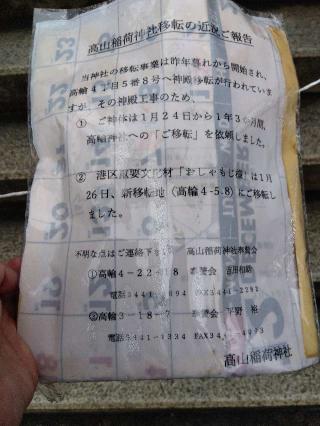 高山稲荷神社移転の近況ご報告
当神社の移転事業は昨年暮れから開始され、
高輪４丁目５番８号へ神殿移転が行われていま
すが、その神殿工事のため、
① ご神体は１月２４日から１年３ケ月間、
高輪神社への「ご移転」を依頼しました。
② 港区重要文化財「おしゃもじ様」は１月
２６日、新移転地（高輪４-5.8）にご移転し
ました。
不明な点はご連絡下さい 高山稲荷神社奉賛会
①高輪４－２２－ 8 奉賛会 吉田
電話 3441- 894 FAX3441-2281
②高輪３－１８－７ 奉賛会 平野 裕
電話 5441-1334 FAX 4993
高山稲荷神社